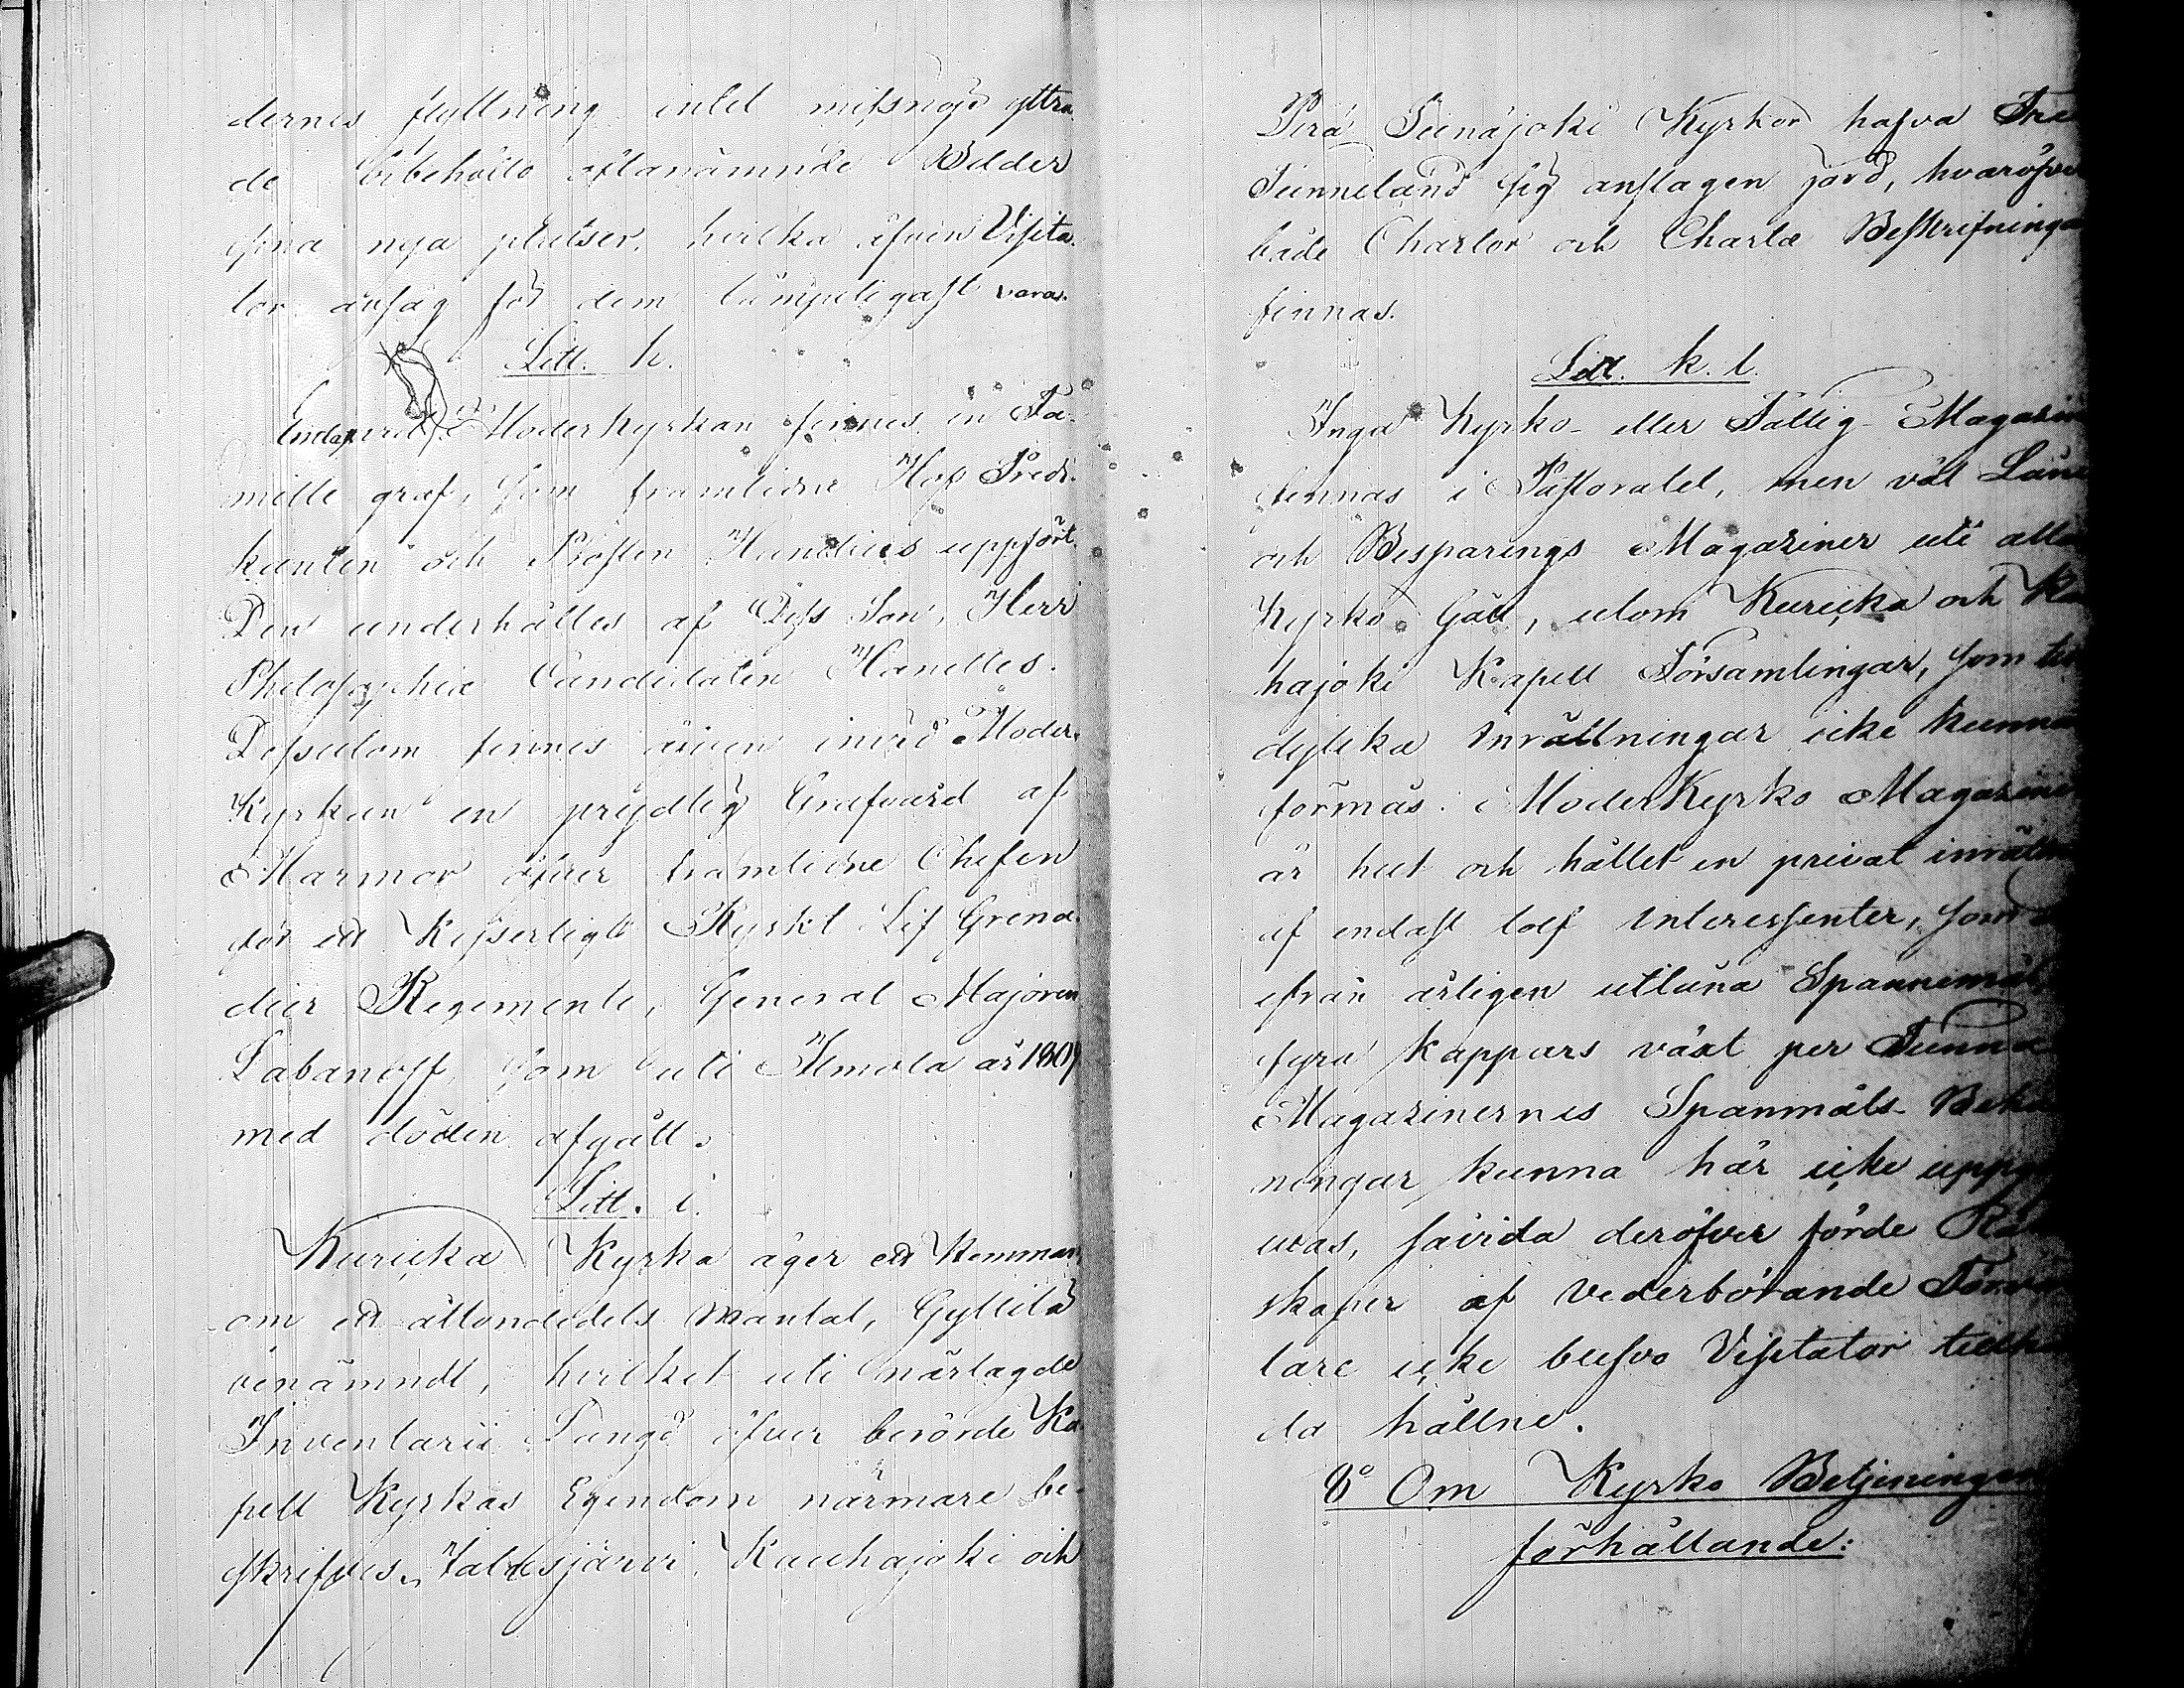 dernes flyttning intet missnöje yttra-
de bibehålla oftanämnde Bilder
sina nya platser, hvilka äfven Visita-
tor ansåg för dem lämpeligast vara.
Litt. h.
Endast i Moderkyrkan finnes en Fa-
mille graf, som framlidne Hof Predi-
kanten och Prosten uppfört.
Den underhålles af Dess Son, Herr
Philosophiæ Candidaten
Dessutom finnes äfven invid Moder-
Kyrkan en prydlig Grafvård af
Marmor öfver framlidne Chefen
för ett Kejserligt Ryskt Lif Grena-
dier Regemente, General Majoren
Labanoff, som uti Ilmola år 1809
med döden afgått.
Litt. i.
Kuricka Kyrka äger ett Hemman
om ett åttondedels mantal, Gyllilä
benämndt, hvilket uti närlagde
Inventarii öfver berörde Ka-
pell Kyrkas Egendom närmare be-
skrifves. Jalasjärvi, Kauhajoki och
Perä Seinäjoki Kyrkor hafva Tre
Tunneland sig anslagen jord, hvaröfver
både Chartor och Charte Beskrifningar
finnas.
Litt. k. l.
Inga Kyrko- eller Fattig- Magasin
finnas i Pastoratet, men väl Låne
och Besparings Magaziner uti alla
Kyrko Gäll, utom Kuricka och Kau
hajoki Kapell Församlingar, som till
dylika Inrättningar icke kunna
förmås. ModerKyrko Magazinet
är helt och hållet en privat inrättn
af endast tolf Interessenter, som
ifrån årligen utlåna Spannemål
fyra kappars växt per Tunna
Magazinernes Spanmåls- Behå
ningar kunna här icke uppgif
was, såvida deröfver förde Räken
skaper af vederbörande Förval
tare icke blifvo Visitator tillhan
da hållne.
8º Om Kyrko Betjeningens
förhållande: